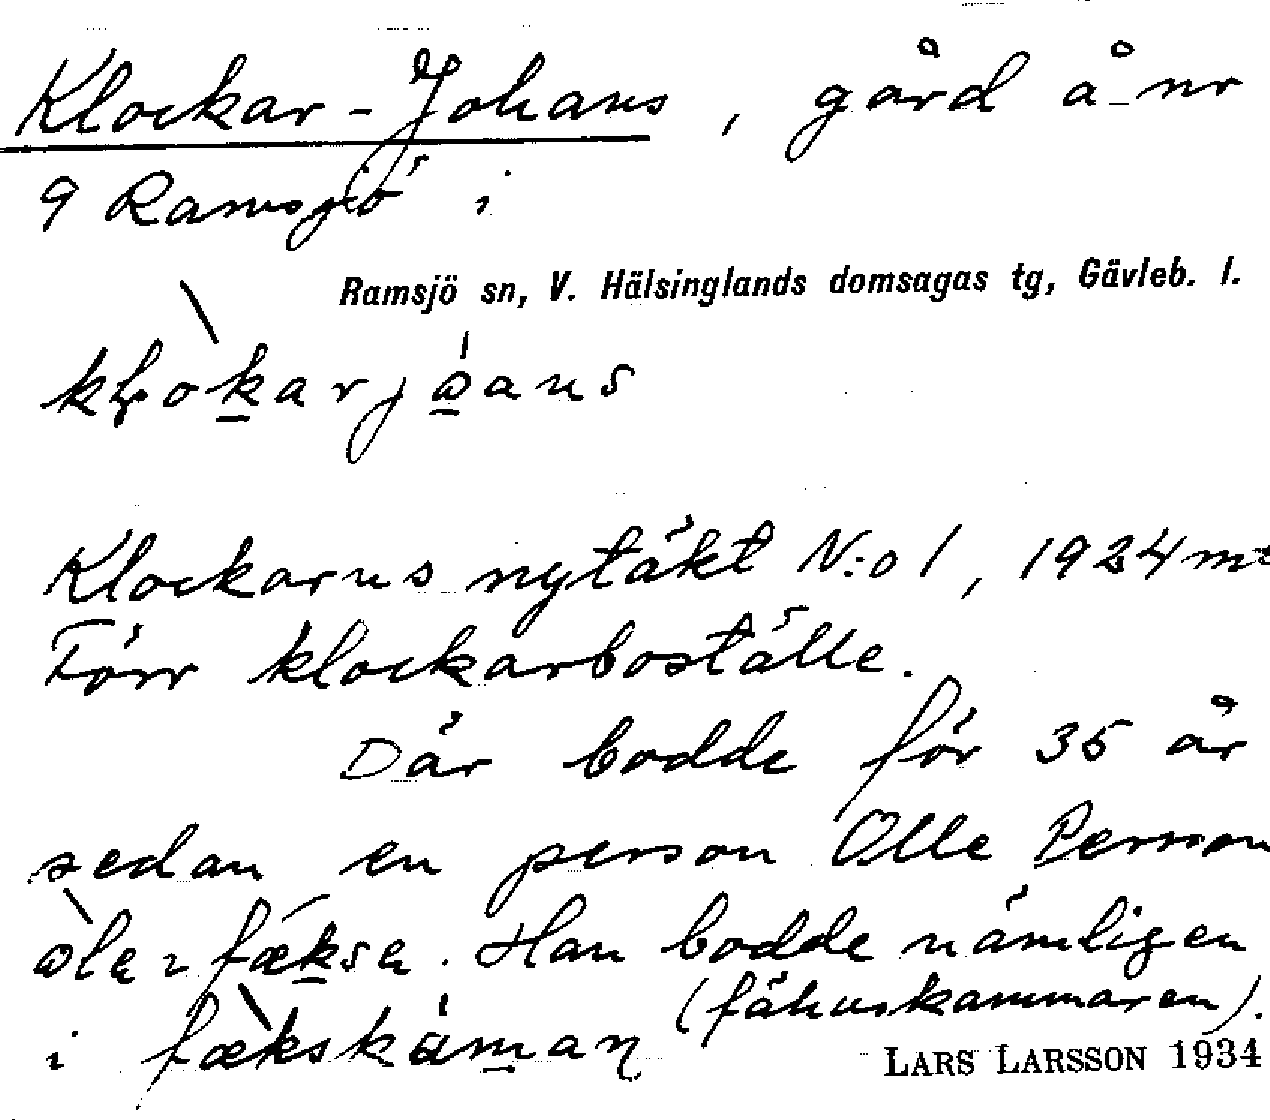 Klockar-Johans, gård å nr
9 Ramsjö i
Ramsjö sn, V. Hälsinglands domsagas tg, Gävleb. l.
Klockarns nytäkt N:o 1, 1924 mt
Förr klockarboställe.
Där bodde för 35 år
sedan en person Olle Persson
Han bodde nämligen
i (fähuskammaren).
LARS LARSSON 1934